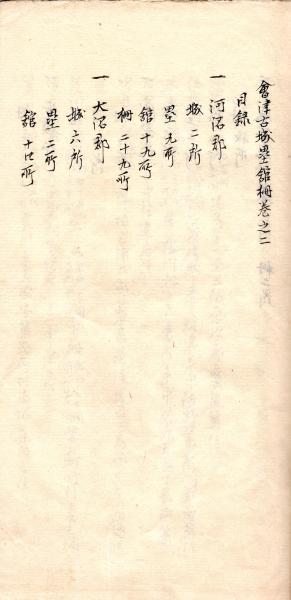 會津古城壘舘柵巻之二
目録
一 河沼郡
城 二所
壘 九所
舘 十九所
柵 二十九所
一 大沼郡
城 六所
壘 二所
舘 十四所